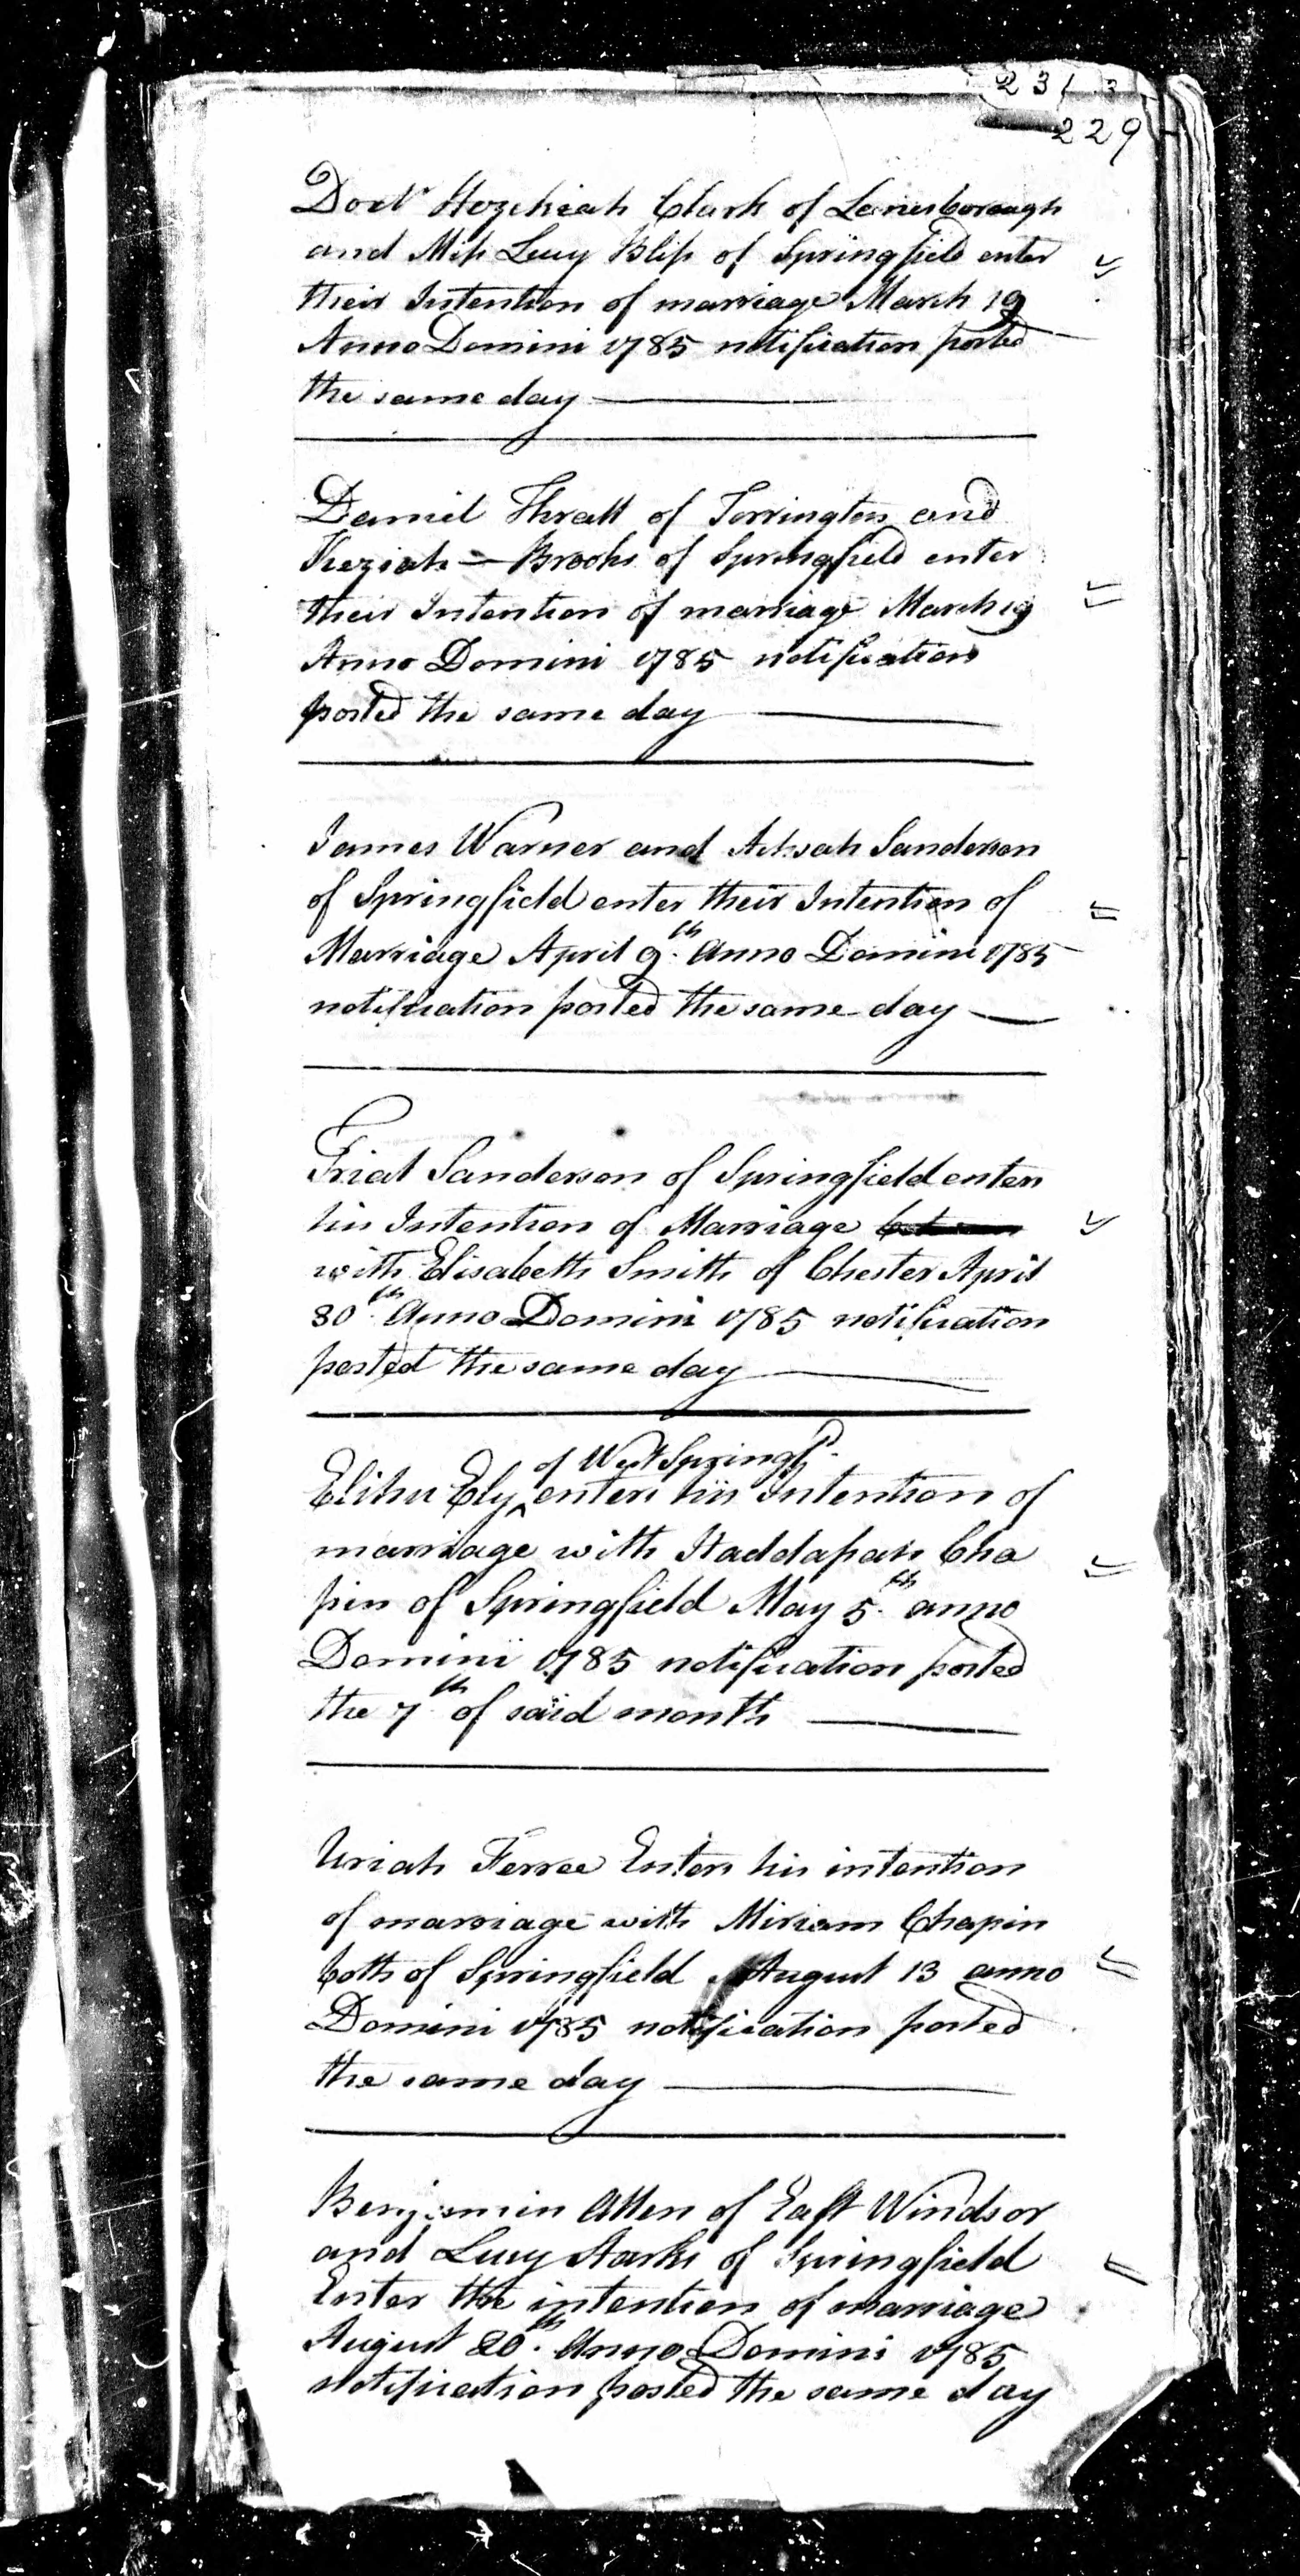 231
229
Doctr Hezekiah Clark of Lanesborough
and Miss Lucy Bliss of Springfield enter
their Intention of marriage March 19
Anno Domini 1785 notification posted
the same day
Daniel Thrall of Torrington and
Keziah Brooks of Springfield enter
their Intention of marriage March 19
Anno Domini 1785 notification
posted the same day
James Warner and Achsah Sanderson
of Springfield enter their Intention of
Marriage April 9th Anno Domini 1785
notification posted the same day
Sanderson of Springfield enters
his Intention of Marriage
with Elisabeth Smith of Chester April
30th Anno Domini 1785 notification
posted the same day
of West Springfd
Elihu Ely enters his Intention of
marriage with Haddasah Cha
pin of Springfield May 5th anno
Domini 1785 notification posted
the 7th of said month
Uriah Ferree Enters his intention
of marriage with Miriam Chapin
both of Springfield August 13 anno
Domini 1785 notification posted
the same day
Benjamin Allen of East Windsor
and Lucy Starks of Springfield
Enter the intention of marriage
August 20th Anno Domini 1785
notification posted the same day